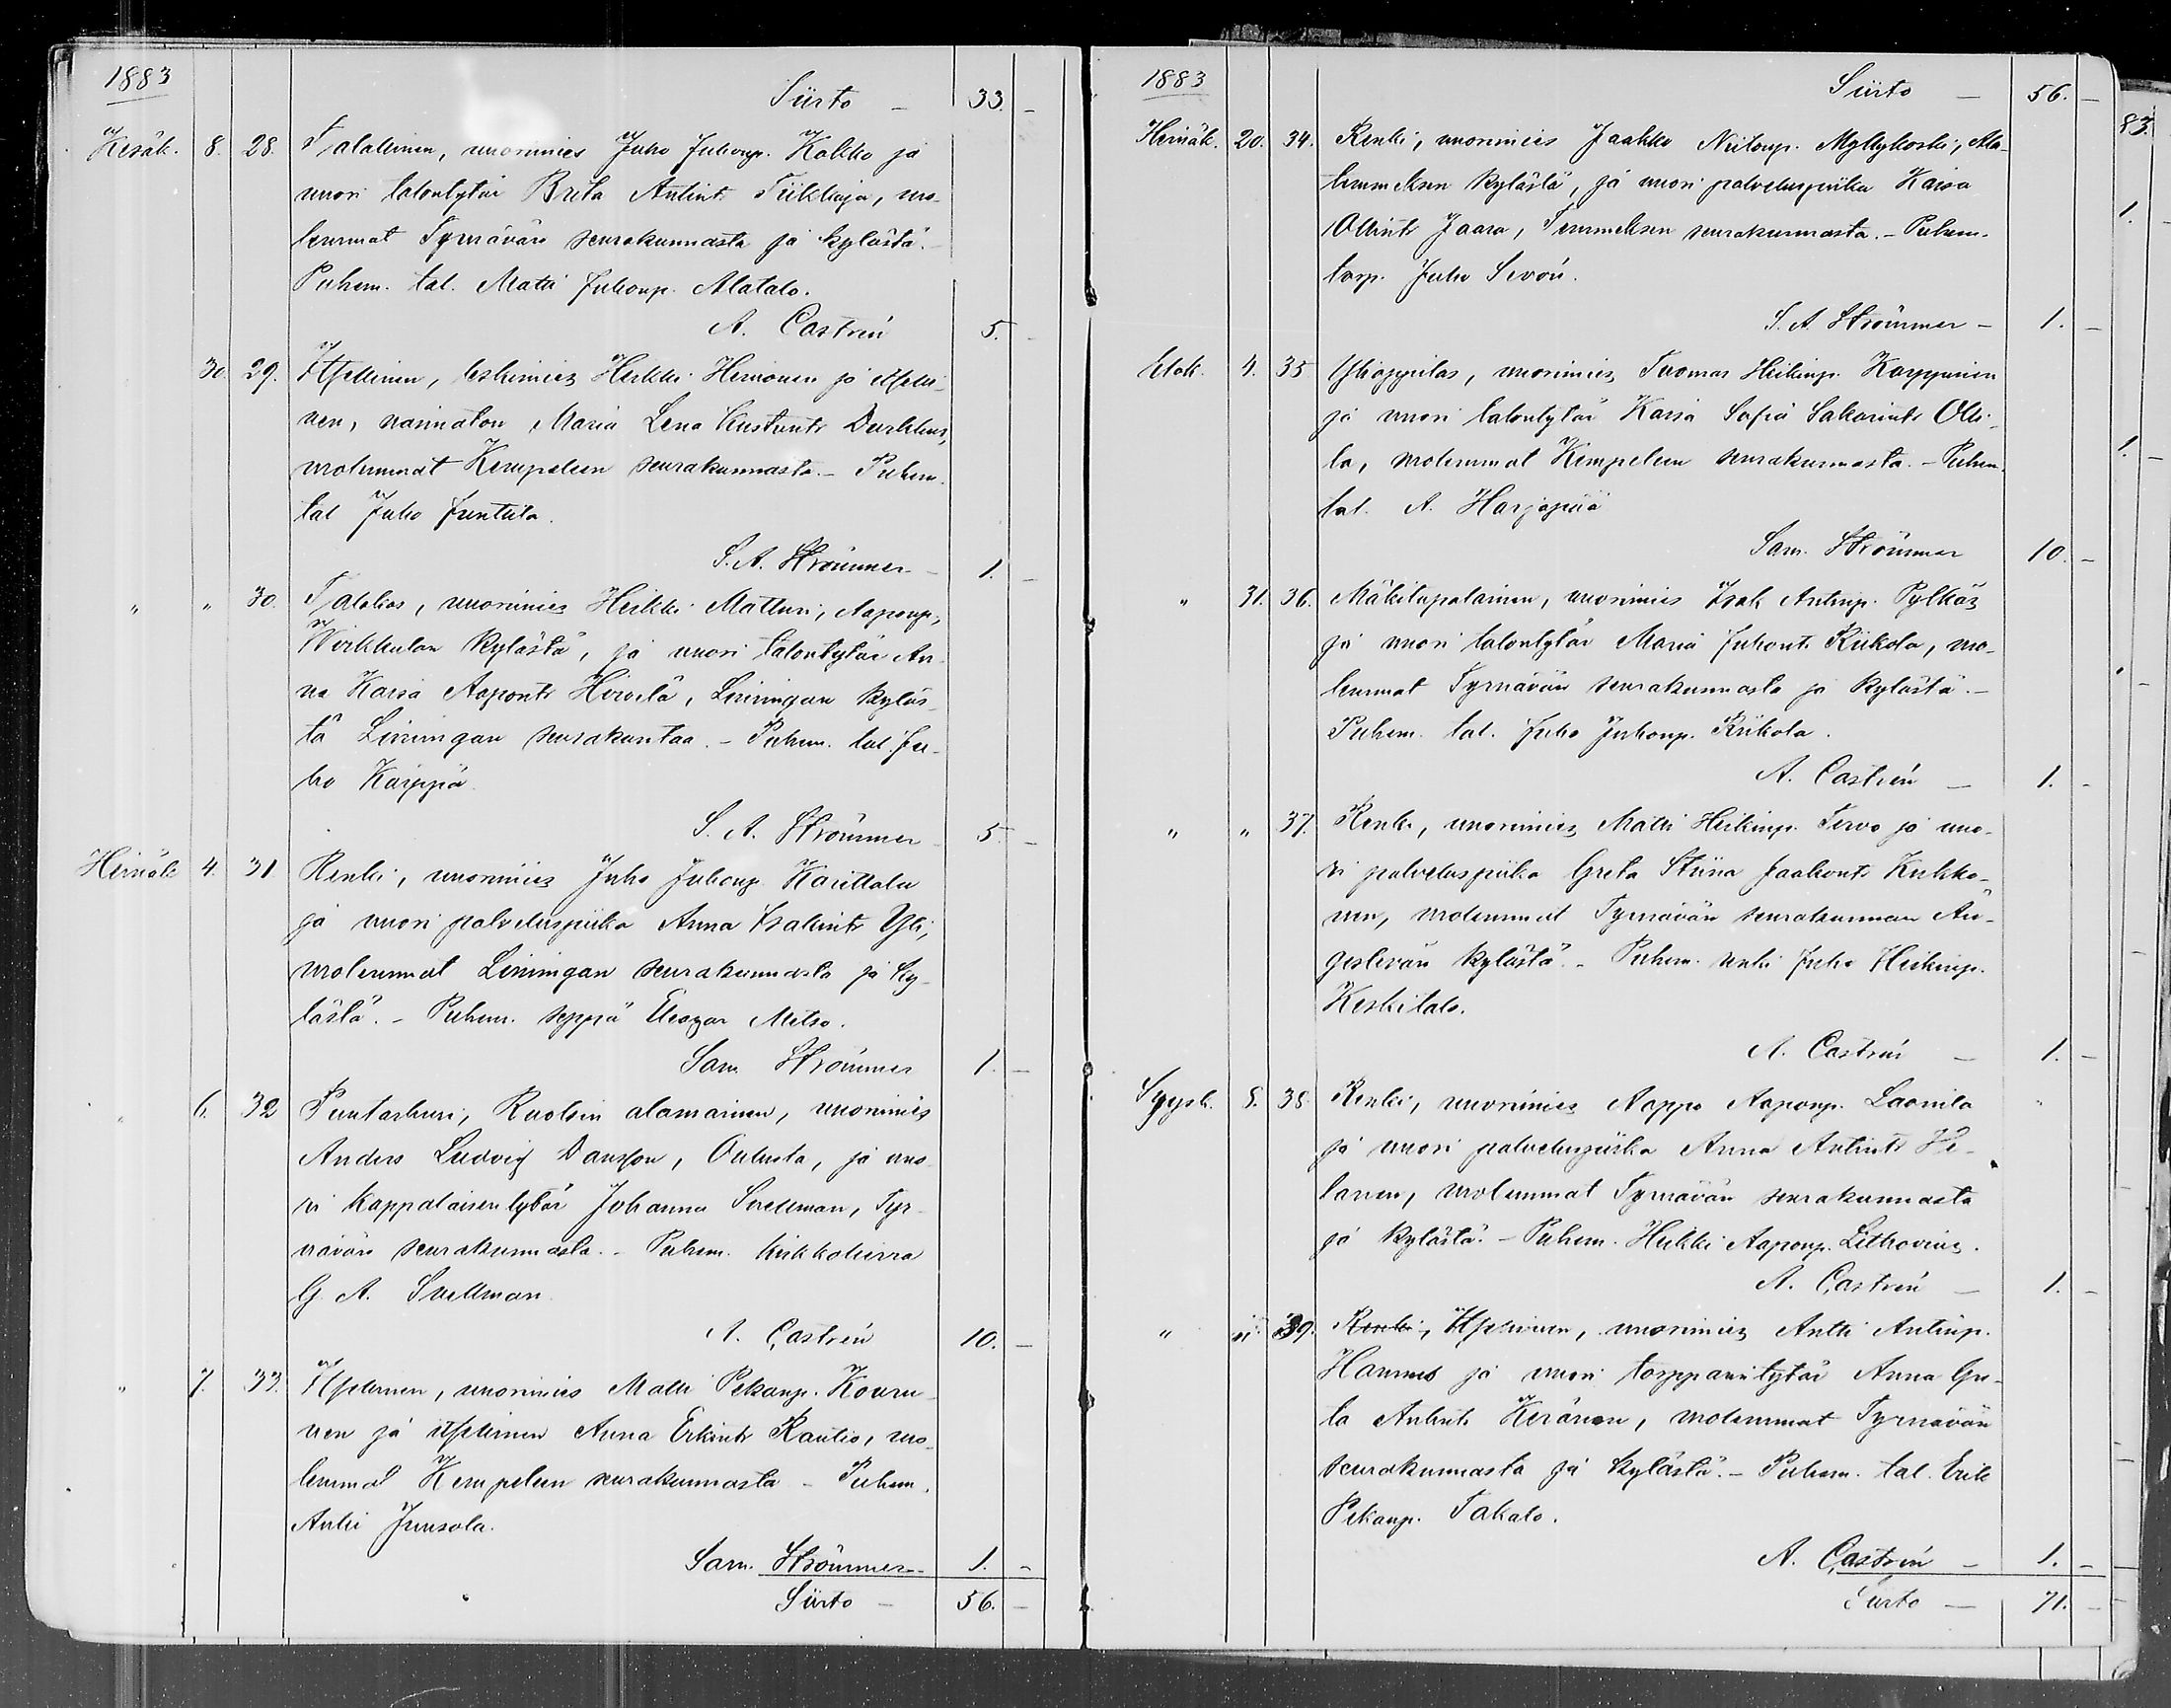 1883
Siirto — 33. —
Kesäk. 8. 28. Talallinen, nuorimies Juho Juhonp. Kokko ja
nuori talontytär Brita Antint. Tiikkaja, mo-
lemmat Tyrnävän seurakunnasta ja kylästä.
Puhem. tal. Matti Juhonp. Alatalo.
A. Castrén 5. -
30. 29. Itsellinen, leskimies Heikki Heinonen ja itselli-
nen, naimaton Maria Lena Kustunt.
molemmat Kempeleen seurakunnasta. - Puhem.
tal Juho Junttila.
S. A. Strömmer - 1. -
" " 30. Talokas, nuorimies Heikki Matturi, Aaponp.,
Wirkkulan kylästä, ja nuori talontytär An-
na Kaisa Aaponts Hirvelä, Limingan kyläs-
tä Limingan seurakuntaa. - Puhem. tal. Ju-
ho Karppa
S. A. Strömmer 5 -
Heinäk 4. 31 Renki, nuorimies Juho Juhonp. Karittala
ja nuori palveluspiika Anna Isakints Yli,
molemmat Limingan seurakunnasta ja ky-
lästä. - Puhem. seppä Eleazar Metso.
Sam. Strömmer 1. -
" 6. 32 Puutarhuri, Ruotsin alamainen, nuorimies
Anders Ludvig Dansson, Oulusta, ja nuo-
ri kappalaisentytär Johanna Snellman, Tyr-
nävän seurakunnasta. - Puhem. kirkkoherra
G. A. Snellman
A. Castrén 10. -
" 7. 33. Itsellinen, nuorimies Matti Pekanp. Kouru-
nen ja itsellinen Anna Erkints Rautio, mo-
lemmat Kempeleen seurakunnasta - Puhem.
Antti Juusola.
Sam. Strömmer - 1. -
Siirto - 56. -
1883
Siirto — 56. -
Heinäk. 20. 34. Renki, nuorimies Jaakko Niilonp. Myllykoski, Ala-
temmeksen kylästä, ja nuori palveluspiika Kaisa
Ollints Jaara, Temmeksen seurakunnasta. - Puhem.
torp. Juho Sivón.
S. A. Strömmer - 1. -
Elok. 4. 35 Ylioppilas, nuorimies Tuomas Heikinp. Karppinen
ja nuori talontytär Kaisa Sofia Sakarints Olli-
la, molemmat Kempeleen seurakunnasta. - Puhem.
tal. A. Harjapää
Sam. Strömmer 10. -
" 31. 36. Mäkitupalainen, nuorimies Isak Antinp. Pylkäs
ja nuori talontytär Maria Juhonts Riikola, mo-
lemmat Tyrnävän seurakunnasta ja kylästä. -
Puhem. tal. Juho Juhonp. Riikola.
A. Castrén — 1. -
" " 37. Renki, nuorimies Matti Heikinp. Tervo ja nuo-
ri palveluspiika Greta Stiina Jaakonts Kukko-
nen, molemmat Tyrnävän seurakunnan Än-
geslevän kylästä. - Puhem. renki Juho Heikinp.
Keskitalo.
A. Castrén — 1. -
Syysk. 8. 38. Renki, nuorimies Aappo Aaponp. Laonila
ja nuori palveluspiika Anna Antints He-
lanen, molemmat Tyrnävän seurakunnasta
ja kylästä. - Puhem. Heikki Aaponp. Lithovius.
A. Castrén — 1. -
" " 39. Renki, Itsellinen, nuorimies Antti Antinp.
Hannus ja nuori torpparintytär Anna Gre-
ta Antints Keränen, molemmat Tyrnävän
seurakunnasta ja kylästä. - Puhem. tal. Erik
Pekanp. Takalo.
A. Castrén - 1. -
Siirto — 71. -
83.
1. -
1. -